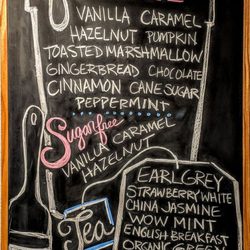 VANILLA CARAMEL
HAZELNUT PUMPKIN
TOASTED MARSHMALLOW
GINGERBREAD CHOCOLATE
CINNAMON CANE SUGAR
PEPPERMINT
Sugarfree
VANILLA CARAMEL
HAZELNUT
EARL GREY
STRAWBERRY WHITE
CHINA JASMINE
WOW MINT
ENGLISH BREAKFAST
ORGANIC GREEN
Tea